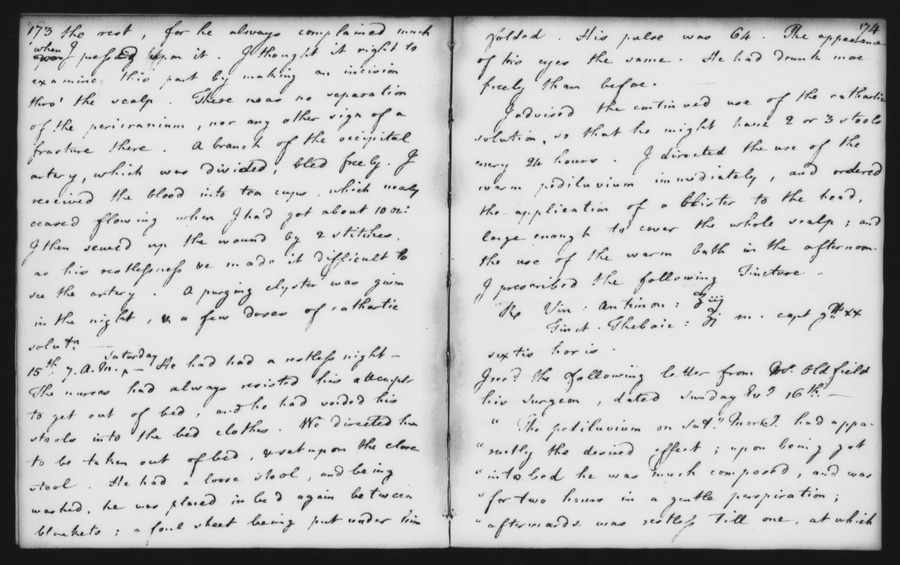 173
the rest, for he always complained much
when I pressed upon it. I thought it right to
examine this part by making an incision
thro' the scalp. There was no separation
of the pericranium, nor any other sign of a
fracture there. A branch of the occipital
artery, which was divided, bled freely. I
received the blood into tea cups, which nearly
ceased flowing when I had got about 10 oz:
I then sewed up the wound by 2 stitches,
as his restlessness &c made it difficult to
see the artery. A purging clyster was given
in the night, & a few doses of cathartic
solutn.
15th. 7. A.M. Saturday He had had a restless night—
The nurses had always resisted his attempts
to get out of bed, and he had voided his
stools into the bed clothes. We directed him
to be taken out of bed, & set upon the close
stool. He had a loose stool, and being
washed, he was placed in bed again between
blankets; a foul sheet being put under him
174
folded. His pulse was 64. The appearance
of his eyes the same. He had drunk more
freely than before.
I advised the continued use of the cathartic
solution, so that he might have 2 or 3 stools
every 24 hours. I directed the use of the
warm pediluvium immediately, and ordered
the application of a blister to the head,
large enough to cover the whole scalp; and
the use of the warm bath in the afternoon.
I prescribed the following Tincture—
Rx Vin. Antimon: ʒiij
Tinct. Thebaic: ʒj m. capt gtt xx
sextis horis.
Jrec'd the following letter from Mr. Oldfield
his Surgeon, dated Sunday 16th.—
" The pediluvium on Satd. had appa-
" rently the desired effect; upon being got
" into bed he was much composed, and was
" for two hours in a gentle perspiration;
" afterwards was restless till one, at which